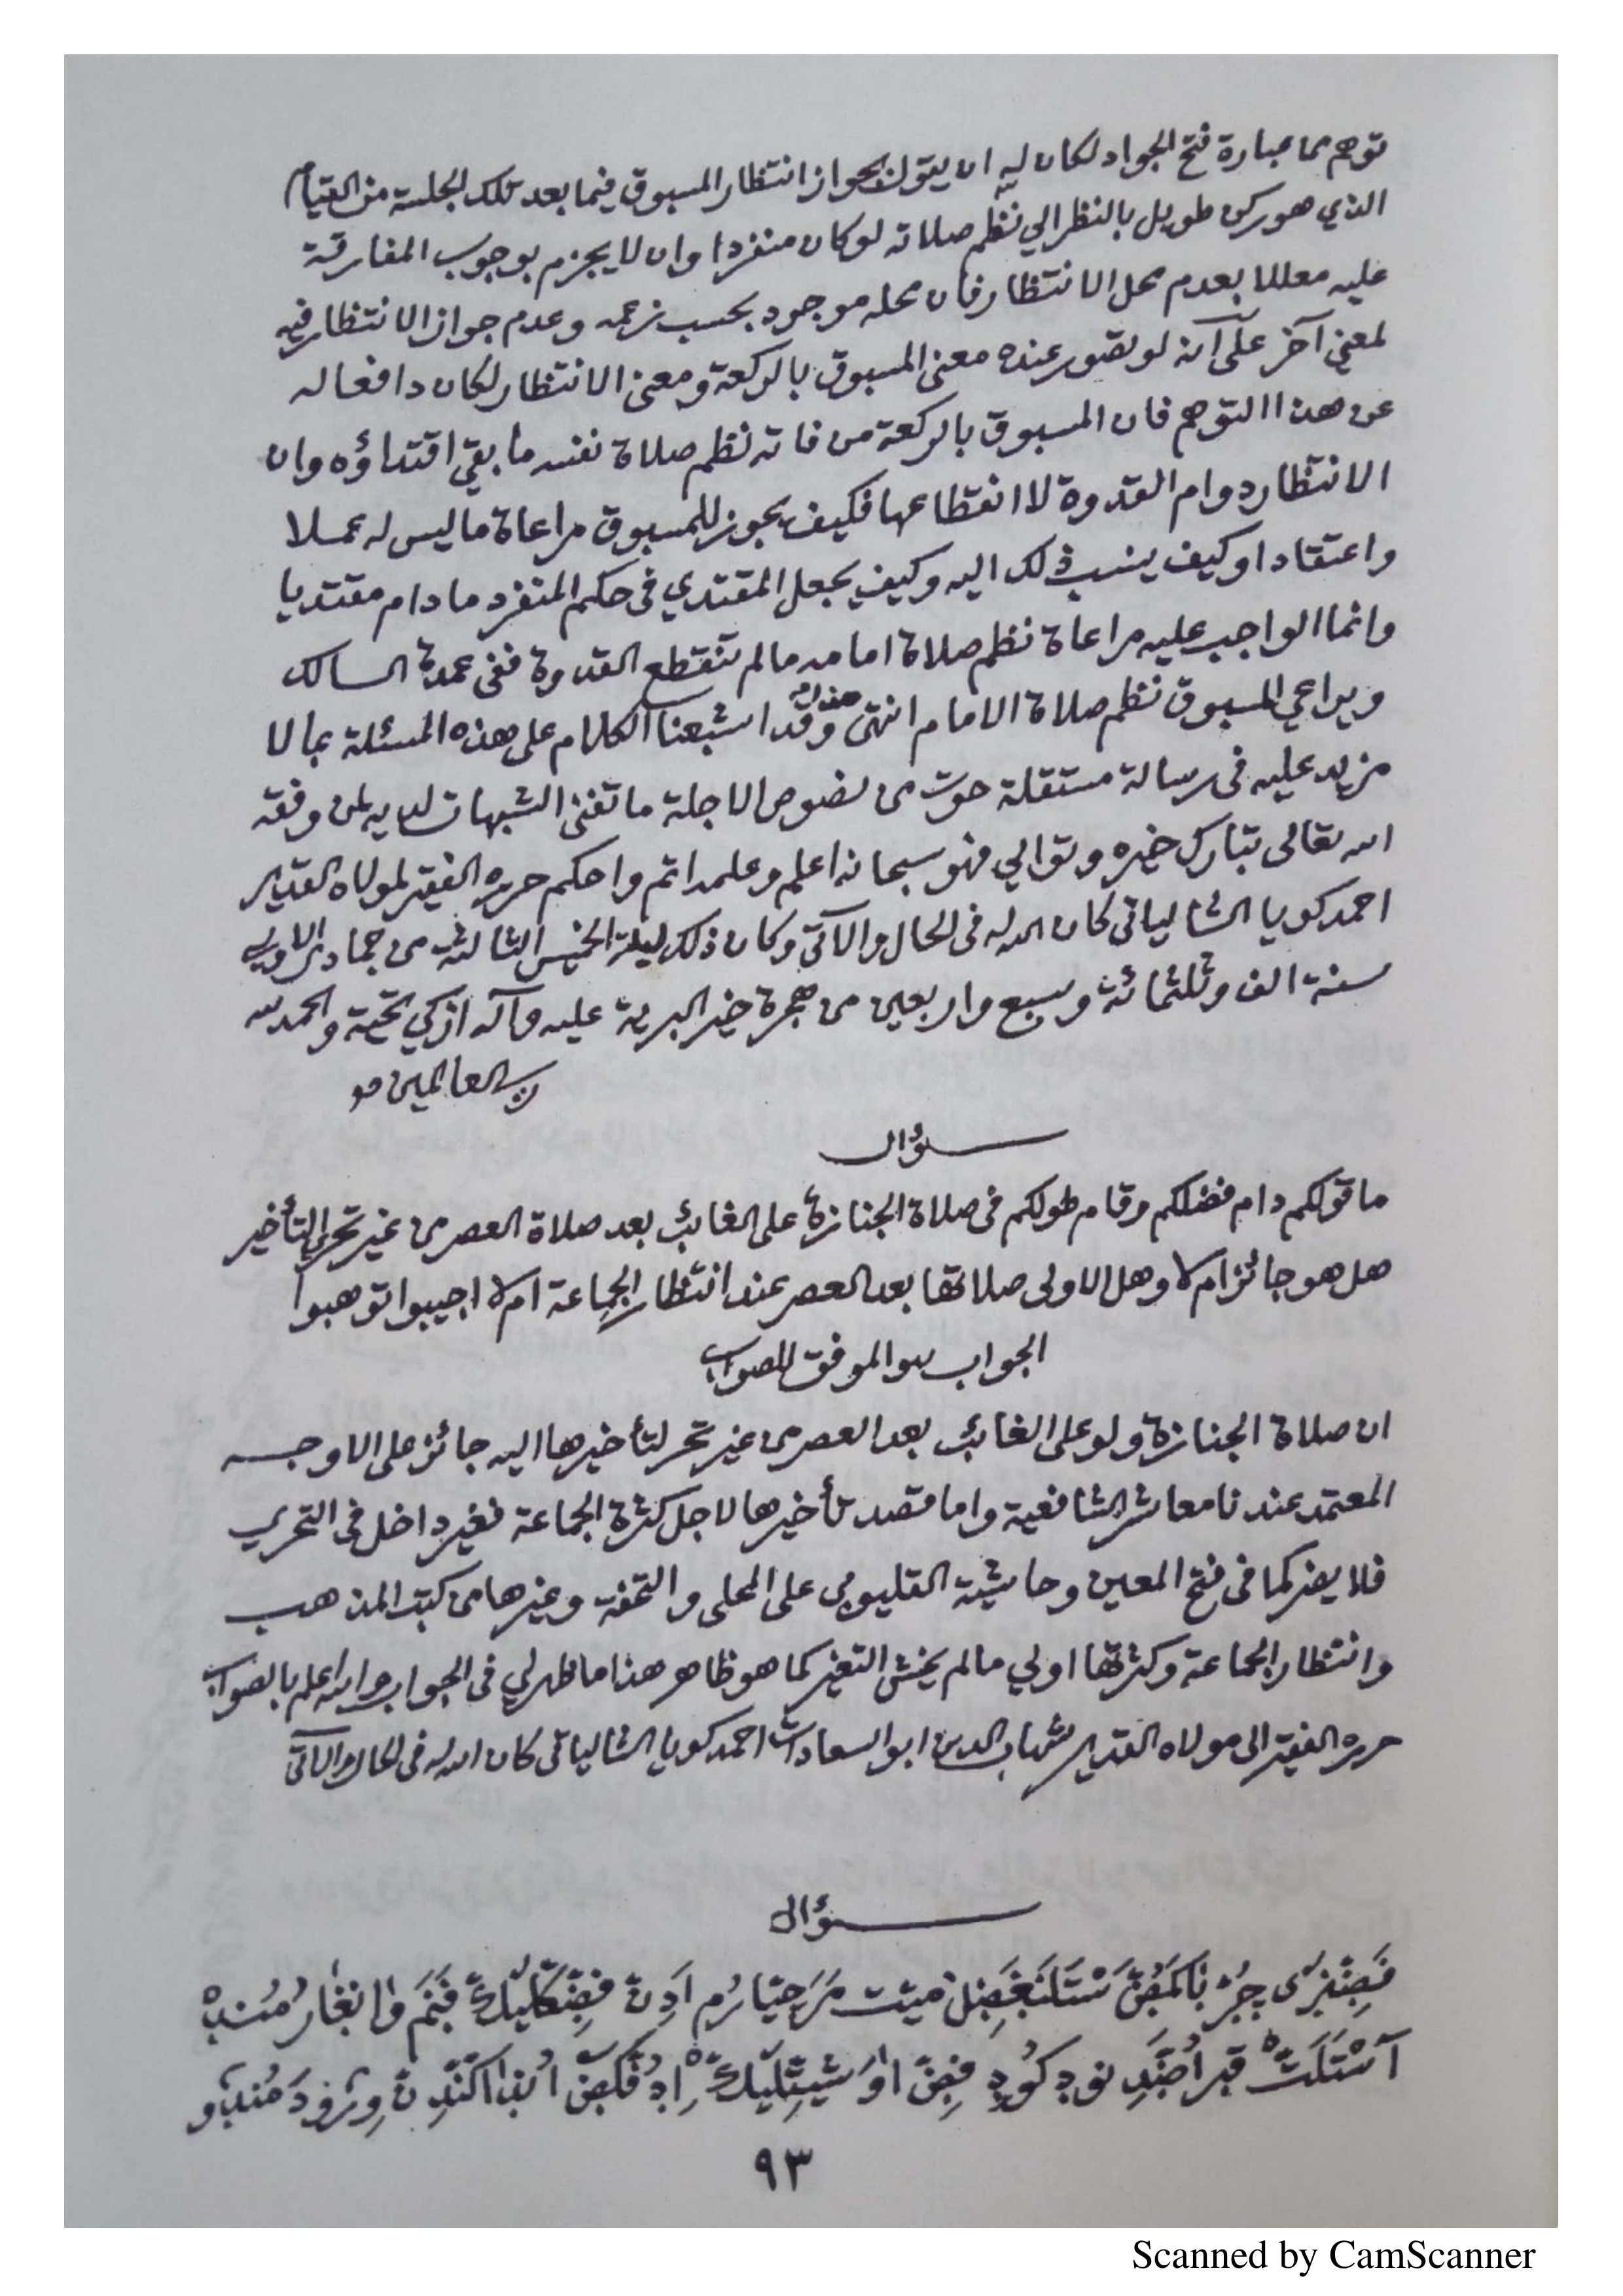 توهم مما عبارة فتح الجواد لكان له ان يقول بجواز انتظار المسبوق فيما بعد تلك الجلسة من القيام
الذي هو ركن طويل بالنظر الي نظم صلاته لو كان منفردا وان لا يجزم بوجوب المفارقة
عليه معللا بعدم محل الانتظار فان محله موجود بحسب زعمه وعدم جواز الانتظار فيه
لمعنى آخر على انه لو تصور عنده معنى المسبوق بالركعة ومعنى الانتظار لكان دافعا له
عن هذا التوهم فان المسبوق بالركعة من فاته نظم صلاة نفسه ما بقي اقتداؤه وان
الانتظار دوام القدوة لا انقطاعها فكيف يجوز للمسبوق مراعاة ما ليس له عملا
واعتقادا وكيف ينسب ذلك اليه وكيف يجعل المقتدي فى حكم المنفرد ما دام مقتديا
وانما الواجب عليه مراعاة نظم صلاة امامه ما لم تنقطع القدوة ففى عمدة السالك
ويراعي المسبوق نظم صلاة الامام انتهى هذا وقد اشبعنا الكلام على هذه المسئلة بما لا
مزيد عليه فى رسالة مستقلة حوت من نصوص الاجلة ما تفنى الشبهات لديه بمن وفقه
الله تعالى تبارك خيره وتوالي فهو سبحانه اعلم وعلمه اتم واحكم حرره الفقير لمولاه القدير
احمد كويا الشالياتى كان الله له فى الحال والآتى وكان ذلك ليلة الخميس الثالثة من جمادى الاولى
سنة الف وثلثمائة وسبع واربعين من هجرة خير البرية عليه وآله ازكي تحية والحمد لله
رب العالمين
سؤال
ما قولكم دام فضلكم وقام طولكم فى صلاة الجنازة على الغائب بعد صلاة العصر من غير تحري التأخير
هل هو جائز ام لا وهل الاولى صلاتها بعد العصر عند انتظار الجماعة ام لا اجيبوا توهبوا
الجواب والموفق للصواب
ان صلاة الجنازة ولو على الغائب بعد العصر من غير تحر لتأخيرها اليه جائز على الاوجه
المعتمد عندنا معاشر الشافعية واما قصد تأخيرها لاجل كثرة الجماعة فغير داخل فى التحري
فلا يضر كما فى فتح المعين وحاشية القليوبي على المحلى والتحفة وغيرها من كتب المذهب
وانتظار الجماعة وكثرتها اولي ما لم يخش التغير كما هو ظاهر هذا ما ظهر لي فى الجواب والله اعلم بالصواب
حرره الفقير الى مولاه القدير شهاب الدين ابو السعادات احمد كويا الشالياتى كان الله له فى الحال والآتى
سؤال
٩٣
Scanned by CamScanner